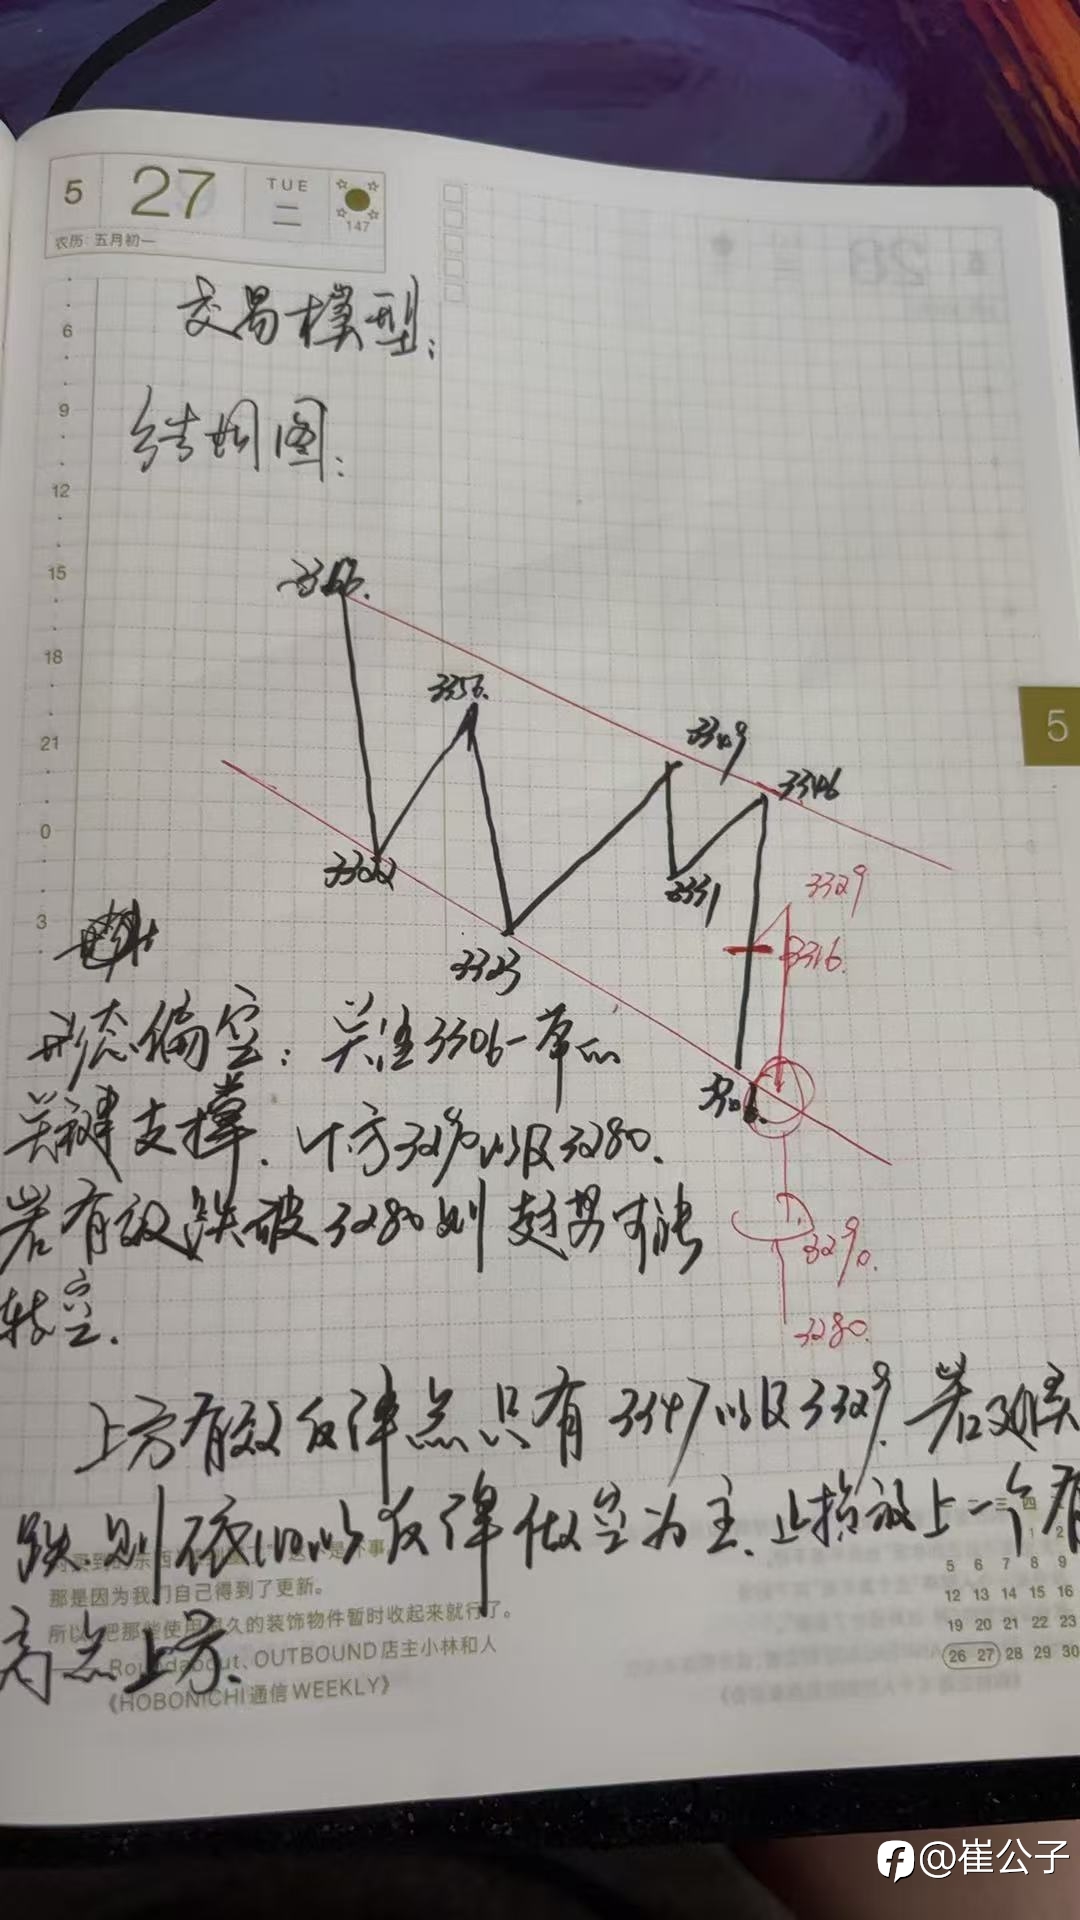 5
27
TUE
二
147
农历:五月初一
交易模型:
6
结构图:
9
12
15
3356.
18
21
3349
3346
5
0
3322
3331
3329
3316.
3
3323
形态偏空:关注3306一带的
关键支撑.下方3290以及3280.
3306.
若有效跌破3280则趋势可能
转空.
3290.
3280.
上方有效反弹点只有3347以及3329.若延续
跌.则依旧以反弹做空为主.止损放上一个有
高点上方.
那是因为我们自己得到了更新。
所以 把那些使用很久的装饰物件暂时收起来就行了。
Roundabout、OUTBOUND店主小林和人
《HOBONICHI通信WEEKLY》
二 三 四
1 2
5 6 7 8 9
12 13 14 15 16
19 20 21 22 23
26 27 28 29 30
@崔公子